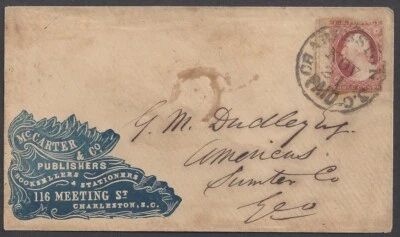 McCARTER
& CO
PUBLISHERS
BOOKSELLERS & STATIONERS
116 MEETING ST
CHARLESTON, S.C.
G. M. Dudley Esq.
Americus
Sumter Co
Geo
PAID